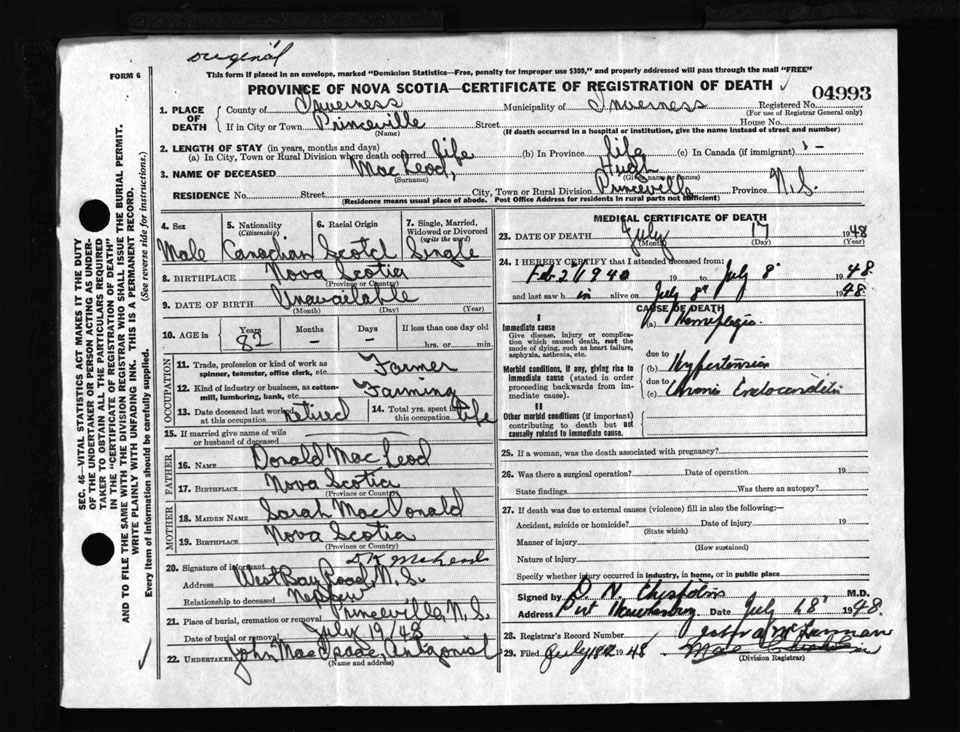 original
FORM 6
This form if placed in an envelope, marked "Dominion Statistics—Free, penalty for improper use $300," and properly addressed will pass through the mail "FREE"
PROVINCE OF NOVA SCOTIA—CERTIFICATE OF REGISTRATION OF DEATH
04993
1. PLACE OF DEATH
County of Inverness Municipality of Inverness Registered No.
(For use of Registrar General only)
If in City or Town Princeville Street House No.
(Name) (If death occurred in a hospital or institution, give the name instead of street and number)
2. LENGTH OF STAY (in years, months and days)
(a) In City, Town or Rural Division where death occurred life (b) In Province life (c) In Canada (if immigrant) -
3. NAME OF DECEASED MacLeod, Hugh
(Surname) (Given name or names)
RESIDENCE No. Street City, Town or Rural Division Princeville Province N.S.
(Residence means usual place of abode. Post Office Address for residents in rural parts not sufficient)
4. Sex 5. Nationality (Citizenship) 6. Racial Origin 7. Single, Married, Widowed or Divorced (write the word)
Male Canadian Scotch Single
8. BIRTHPLACE Nova Scotia
(Province or Country)
9. DATE OF BIRTH Unavailable
(Month) (Day) (Year)
10. AGE in Years Months Days If less than one day old
82 - - hrs. or min.
OCCUPATION
11. Trade, profession or kind of work as spinner, teamster, office clerk, etc. Farmer
12. Kind of industry or business, as cotton-mill, lumbering, bank, etc. Farming
13. Date deceased last worked at this occupation retired 14. Total yrs. spent in this occupation Life
15. If married give name of wife or husband of deceased
FATHER
16. NAME Donald MacLeod
17. BIRTHPLACE Nova Scotia
(Province or Country)
MOTHER
18. MAIDEN NAME Sarah MacDonald
19. BIRTHPLACE Nova Scotia
(Province or Country)
20. Signature of informant
Address West Bay Road, N.S.
Relationship to deceased Nephew
21. Place of burial, cremation or removal Princeville, N.S.
Date of burial or removal July 19/48
22. UNDERTAKER John MacIsaac, Antagonist
(Name and address)
MEDICAL CERTIFICATE OF DEATH
23. DATE OF DEATH July 17 1948
(Month) (Day) (Year)
24. I HEREBY CERTIFY that I attended deceased from:
Feb 2 1940 19 to July 8 1948.
and last saw h im alive on July 8 1948.
CAUSE OF DEATH
I
Immediate cause
Give disease, injury or complication which caused death, not the mode of dying, such as heart failure, asphyxia, asthenia, etc.
(a) Hemiplegia
due to
Morbid conditions, if any, giving rise to immediate cause (stated in order proceeding backwards from immediate cause).
(b) Hypertension
due to
(c) Chronic Endocarditis
II
Other morbid conditions (if important) contributing to death but not causally related to immediate cause.
25. If a woman, was the death associated with pregnancy?
26. Was there a surgical operation? Date of operation 19
State findings Was there an autopsy?
27. If death was due to external causes (violence) fill in also the following:—
Accident, suicide or homicide? Date of injury 19
(State which)
Manner of injury
(How sustained)
Nature of injury
Specify whether injury occurred in industry, in home, or in public place
Signed by D. N. Chisholm M.D.
Address Port Hawkesbury Date July 1948.
28. Registrar's Record Number
29. Filed July 1948
(Division Registrar)
SEC. 46—VITAL STATISTICS ACT MAKES IT THE DUTY
OF THE UNDERTAKER OR PERSON ACTING AS UNDER-
TAKER TO OBTAIN ALL THE PARTICULARS REQUIRED
IN THE "CERTIFICATE OF REGISTRATION OF DEATH"
AND TO FILE THE SAME WITH THE DIVISION REGISTRAR WHO SHALL ISSUE THE BURIAL PERMIT.
WRITE PLAINLY WITH UNFADING INK. THIS IS A PERMANENT RECORD.
Every item of information should be carefully supplied. (See reverse side for instructions.)